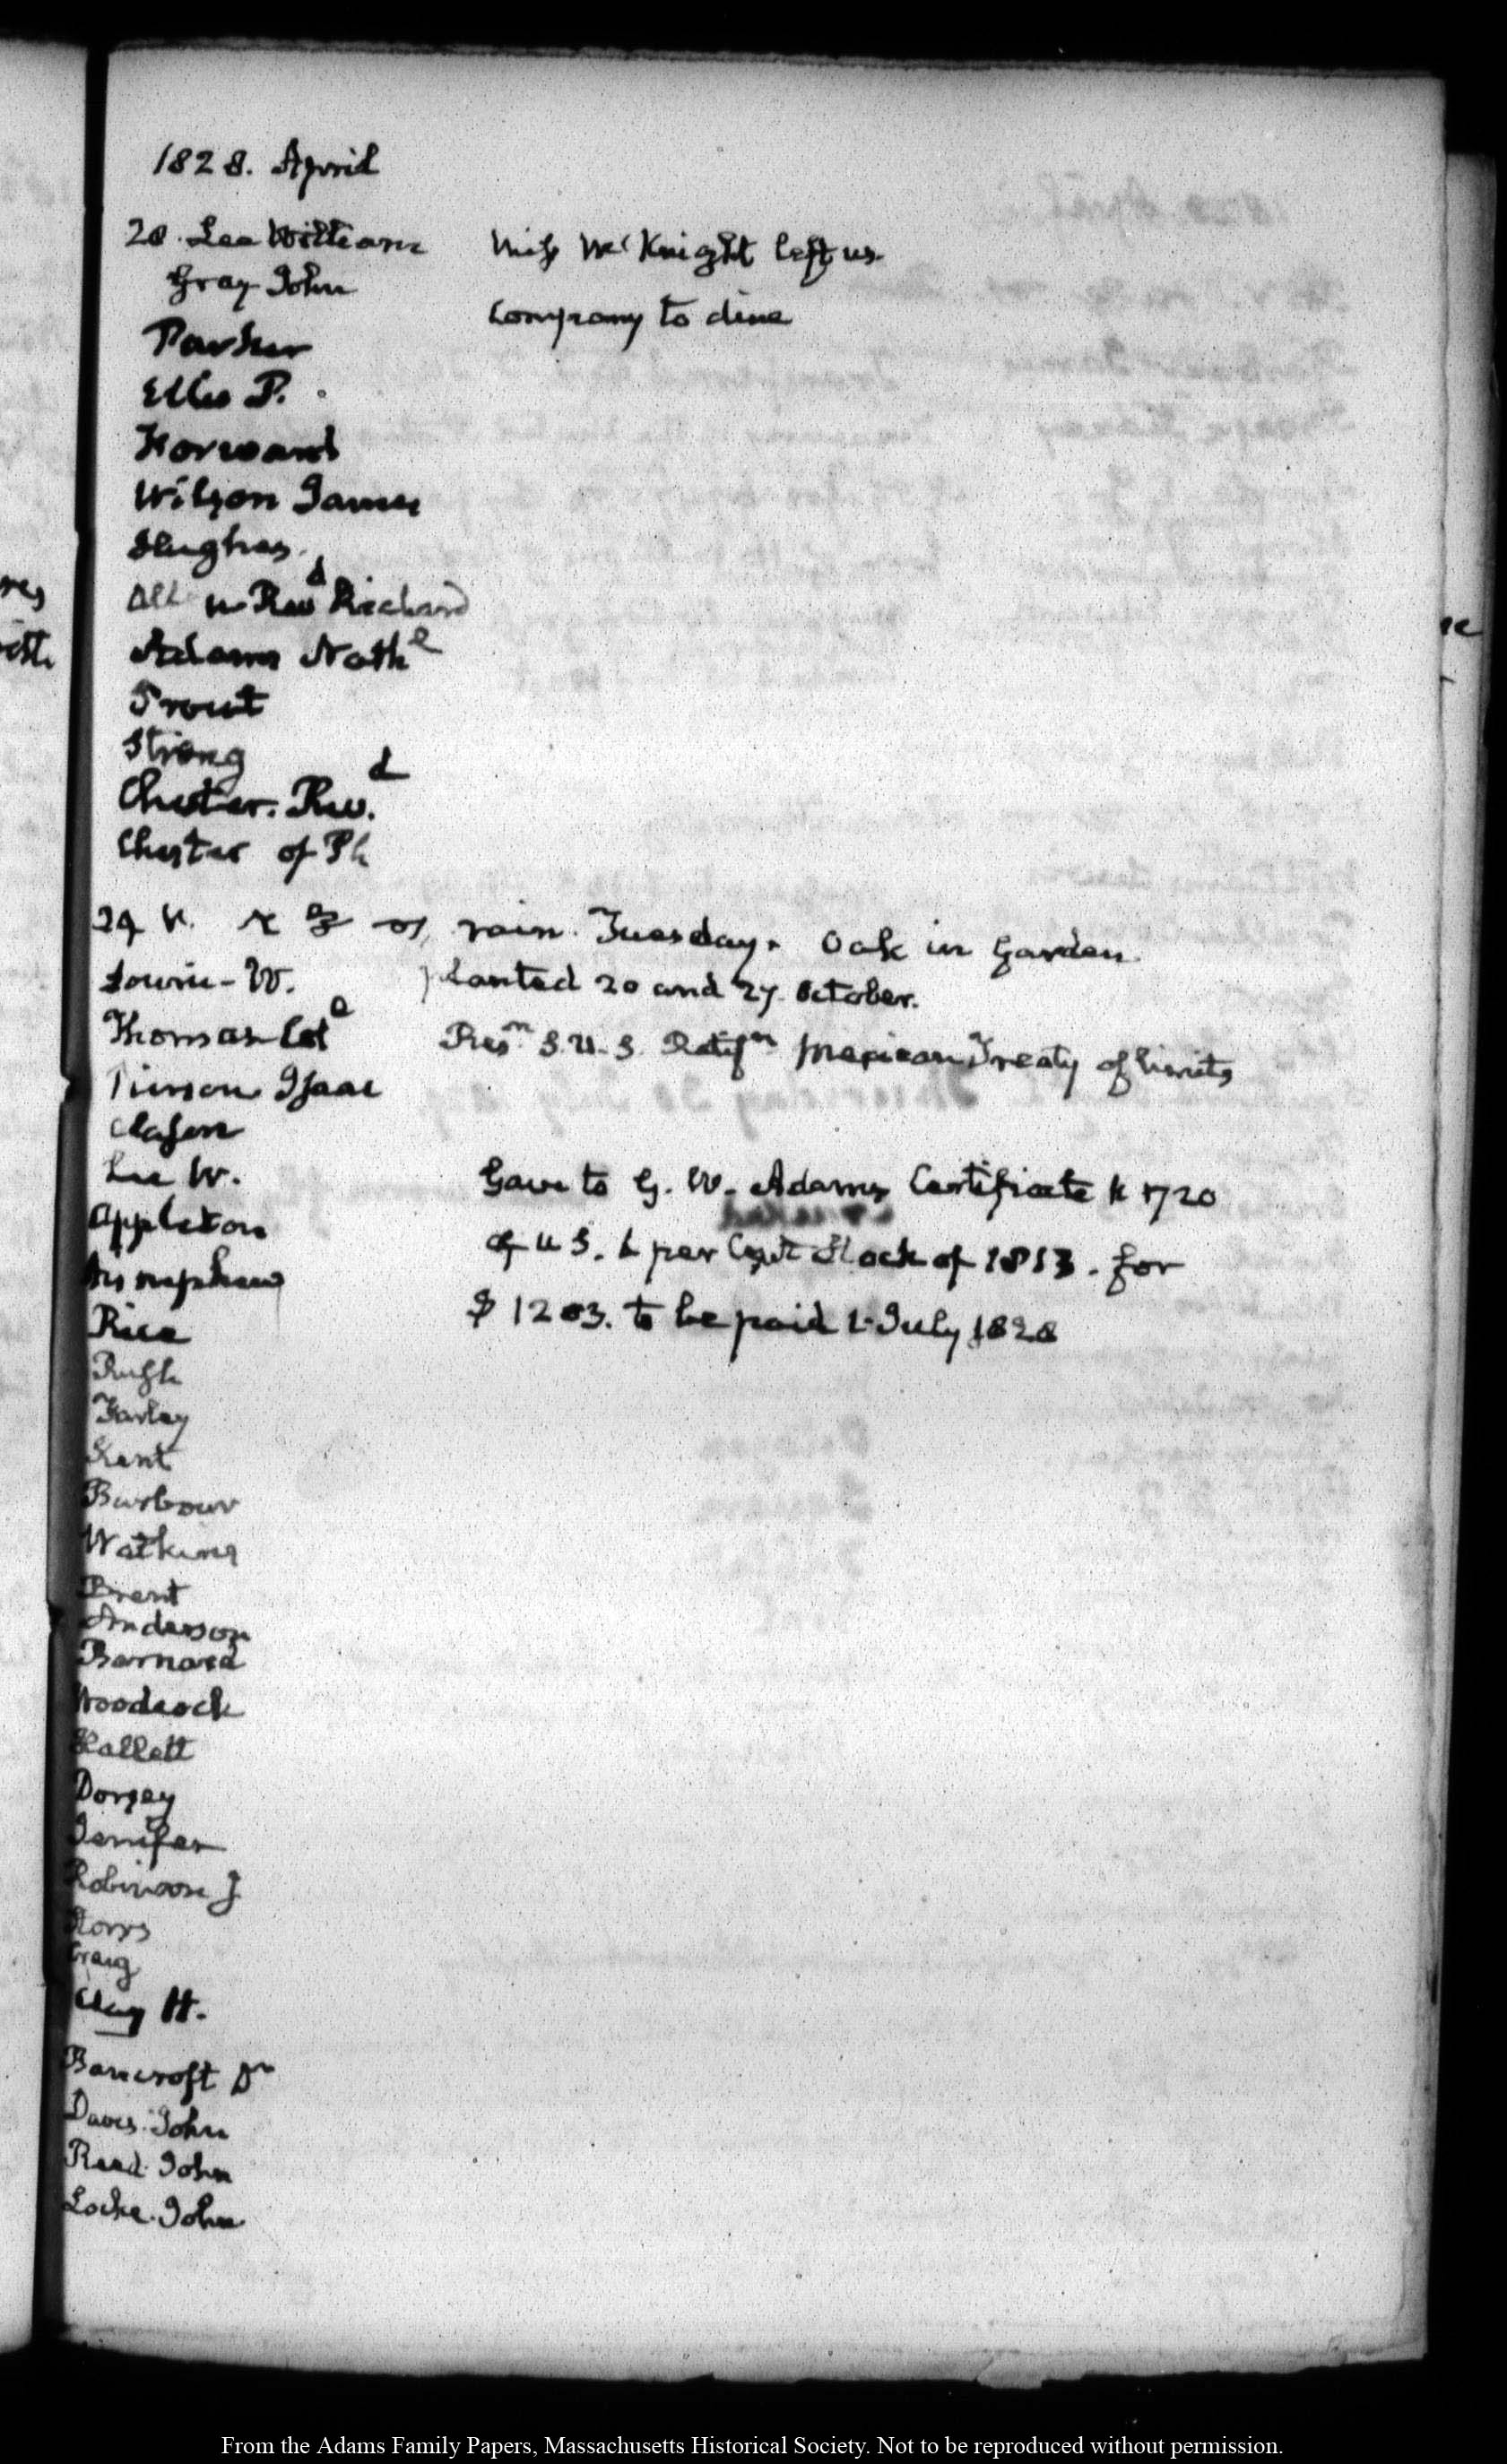 1828. April
28. Lee William
Gray John
Miss McKnight left us.
Company to dine
Parker
Ellis P.
Forward
Wilson James
Hughes.
Revd Richard
Adams Nathl
Prout
Strong
Chester. Revd.
Chester of Ph
29 V. rain. Tuesday. Oak in Garden
planted 20 and 27. October.
Lowrie - W.
Thomas Col
Resn S.U.S. Ratifn Mexican Treaty of limits
Pierson Isaac
Clason
Lee W.
Gave to G. W. Adams Certificate N 1720
of U S. 6 per Cent Stock of 1813. for
$ 1203. to be paid 1 July 1828
Appleton
his nephew
Rice
Rush
Farley
Kent
Barbour
Watkins
Brent
Anderson
Barnard
Woodcock
Hallett
Dorsey
Jenifer
Robinson J
Storrs
Craig
Clay H.
Bancroft Dr
Davis. John
Reed. John
Locke. John
From the Adams Family Papers, Massachusetts Historical Society. Not to be reproduced without permission.